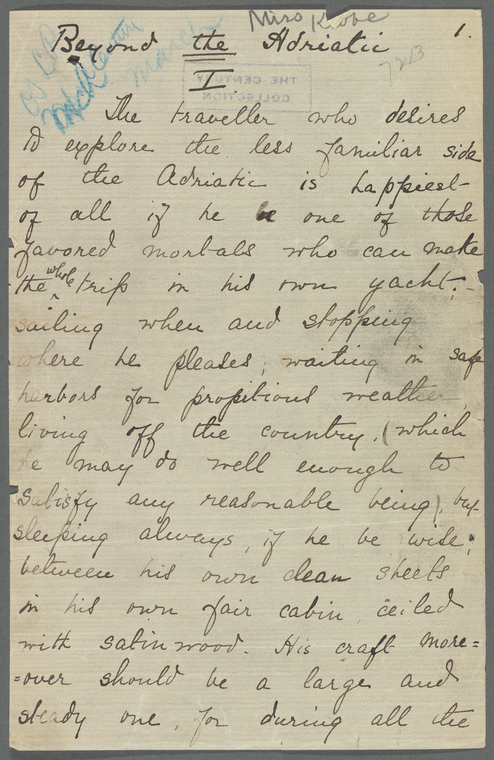 Miss
1.
Beyond the Adriatic
7213
THE CENTURY
COLLECTION
I.
The traveller who desires
to explore the less familiar side
of the Adriatic is happiest
of all if he be one of those
favored mortals who can make
the whole trip in his own yacht;
sailing when and stopping
where he pleases, waiting in safe
harbors for propitious weather,
living off the country, (which
he may do well enough to
satisfy any reasonable being), but
sleeping always, if he be wise,
between his own clean sheets
in his own fair cabin, ceiled
with satin wood. His craft more=
=over should be a large and
steady one, for during all the